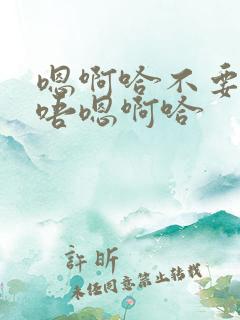 嗯啊哈不要
唔嗯啊哈
許昕
未经同意禁止转载